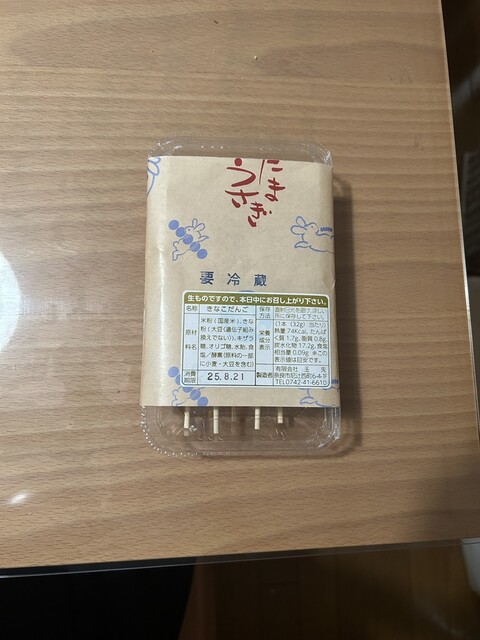 たま
うさぎ
要冷蔵
生ものですので、本日中にお召し上がり下さい。
名称 きなこだんご
原材料名 米粉(国産米)、きな
粉(大豆(遺伝子組み
換えでない))、キザラ
糖、オリゴ糖、水飴、食
塩/酵素(原料の一部
に小麦・大豆を含む)
消費期限 25.8.21
保存方法 直射日光を避け、涼しい
所に保存して下さい。
栄養成分表示 (1本(32g)当たり)
熱量74Kcal、たんぱ
く質1.7g、脂質0.8g、
炭水化物17.2g、食塩
相当量0.09g ※この
表示値は目安です。
製造者 有限会社
奈良市尼辻西町6-4-1F
TEL0742-41-6610